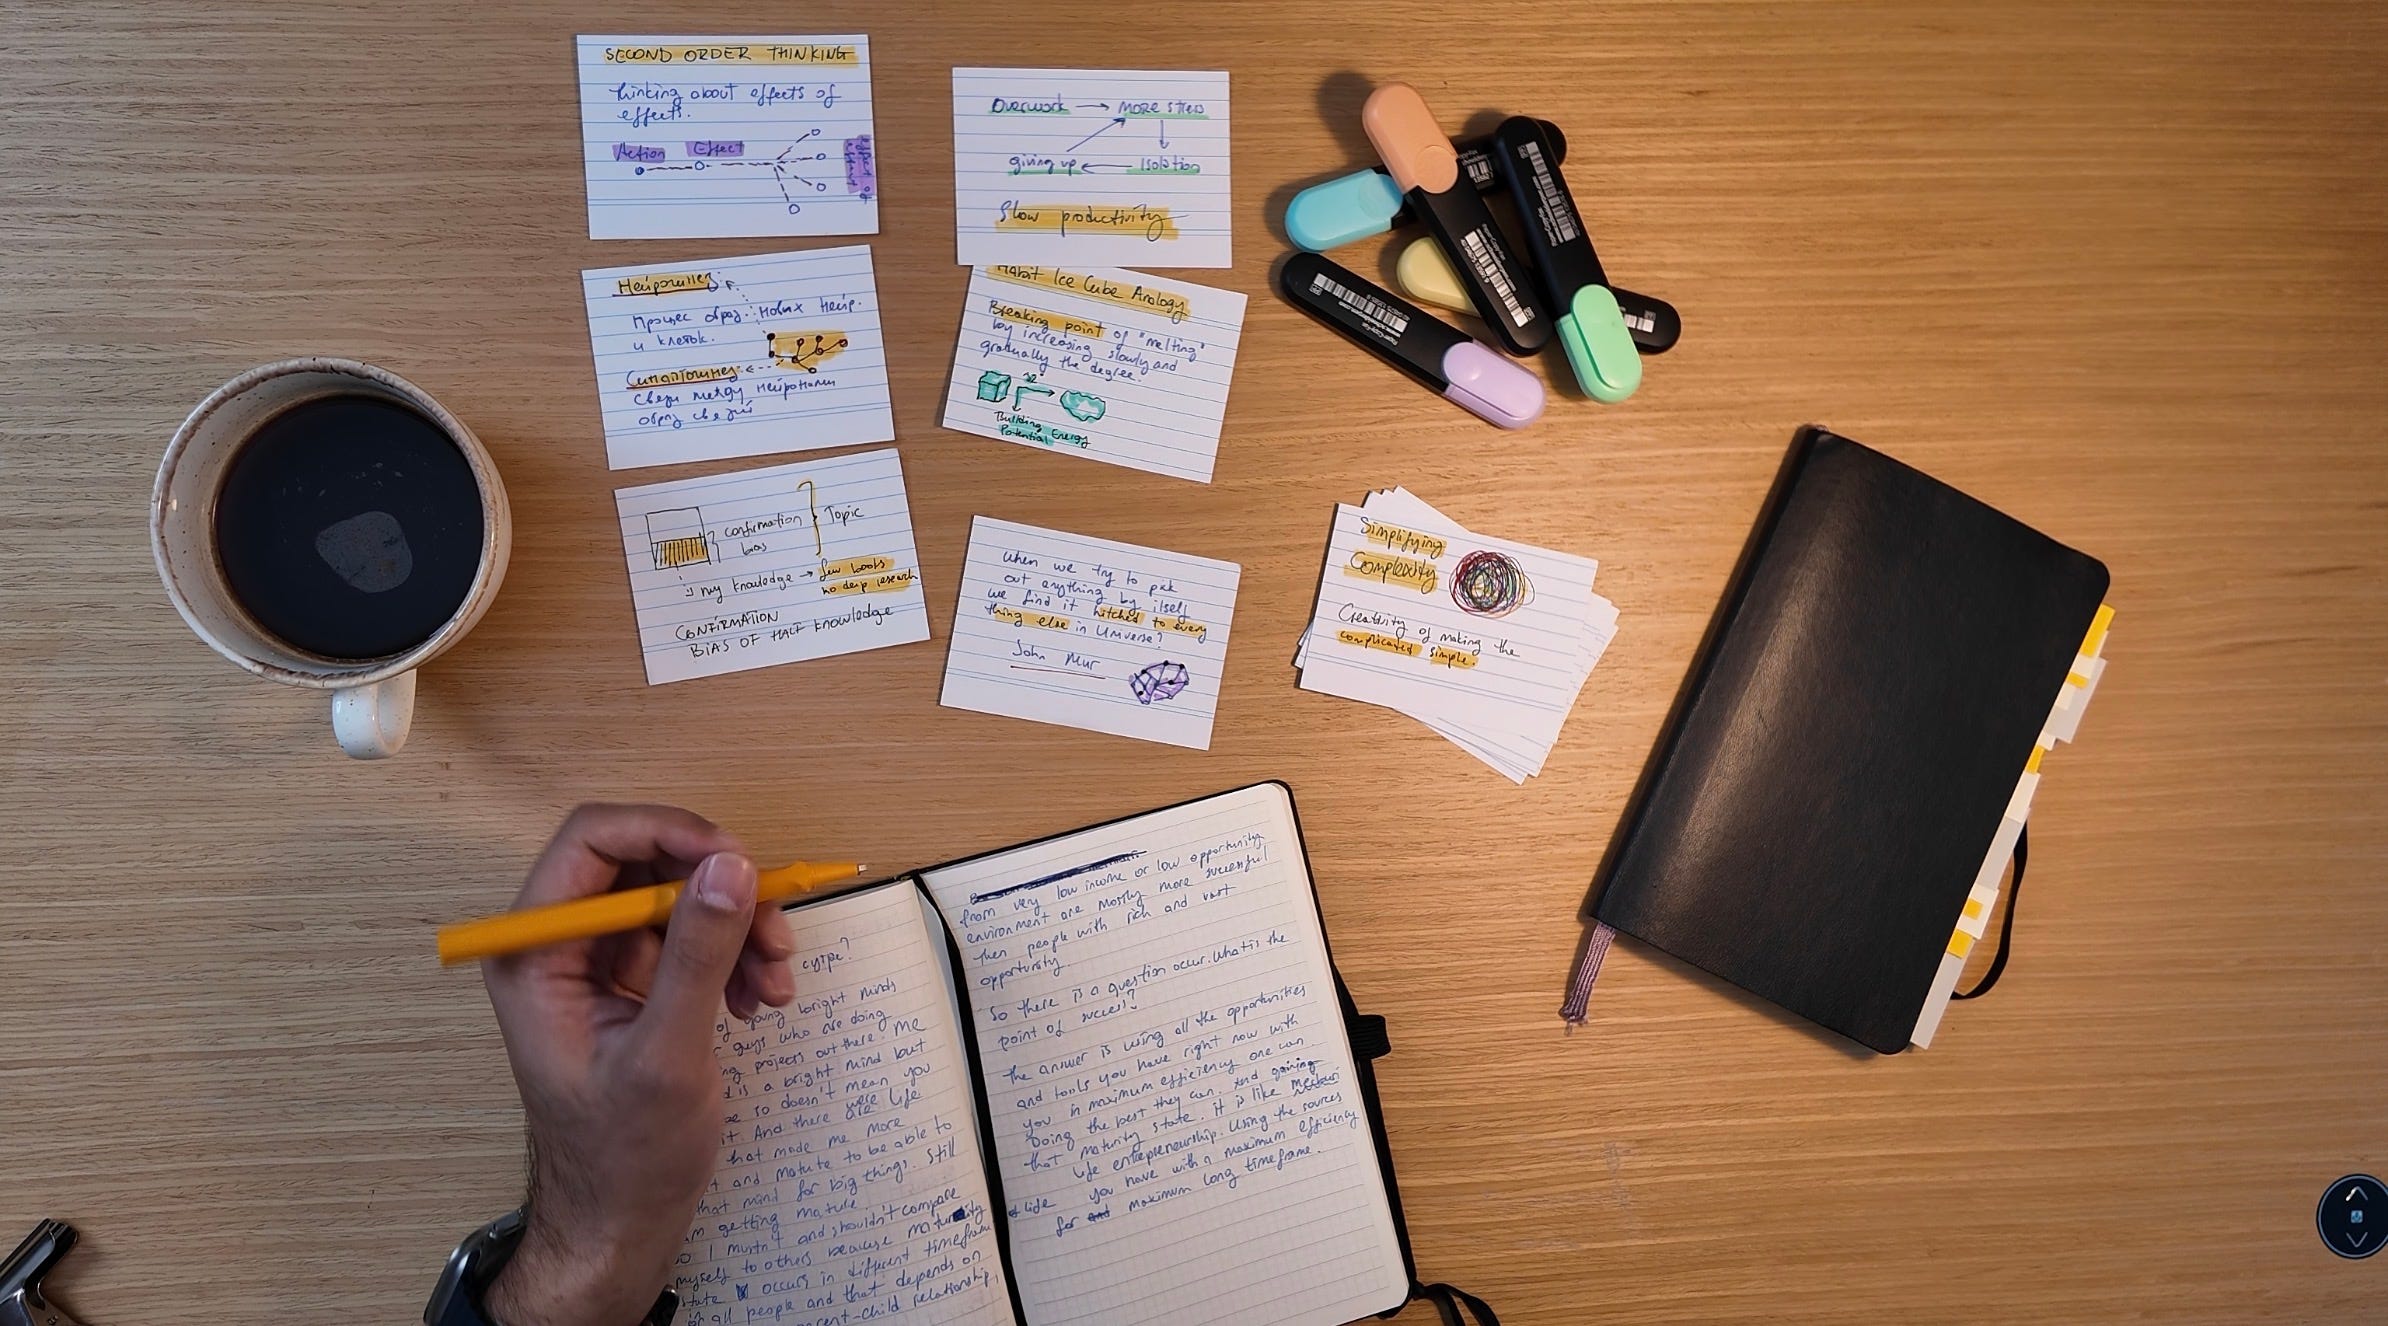 SECOND ORDER THINKING
thinking about effects of
effects.
Action Effect
effect of
effect
Overwork → More stress
giving up ← Isolation
Slow productivity
Нейрогинез
Процес образ. новых нейр.
и клеток.
Синаптогинез
связи между нейронами
образ связий
Habit Ice Cube Anology
Breaking point of "melting"
by increasing slowly and
gradually the degree.
32°
Building Energy
Potential
confirmation
bias
Topic
my knowledge → few books
no deep research
CONFIRMATION
BIAS OF HALF KNOWLEDGE
When we try to pick
out anything by itself
we find it hitched to every
thing else in Universe?
John Mur
Simplifying
Complexity
Creativity of making the
complicated simple.
сутре?
of young bright minds
guys who are doing
ng projects out there. Me
is a bright mind but
so doesn't mean you
it. And there were life
that made me more
t and mature to be able to
that mind for big things. Still
m getting mature.
so I mustn't and shouldn't compare
myself to others because maturity
state occurs in different timeframe
for all people and that depends on
parent-child relationship,
from very low income or low opportunity
environment are mostly more successful
then people with rich and vast
opportunity.
So there is a question occur. What is the
point of success?
The answer is using all the opportunities
and tools you have right now with
you in maximum efficiency one can.
Doing the best they can. And gaining
that maturity state. It is like
life entrepreneurship. Using the sources
of life you have with a maximum efficiency
for and maximum long timeframe.